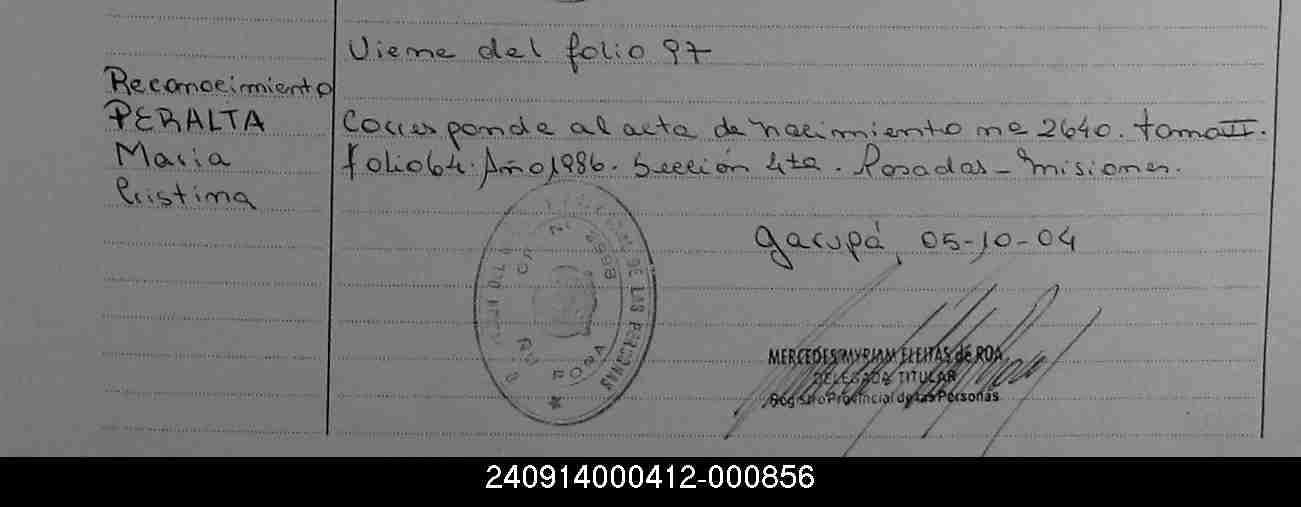 Viene del folio 97
Reconocimiento
PERALTA
Maria
Cristina
Corresponde al acta de nacimiento nº 2640. tomo II.
folio 64. Año 1986. Sección 4ta. Posadas - Misiones.
Garupá, 05-10-04
DE LAS PERSONAS
MERCEDES MYRIAM FLEITAS de ROA
DELEGADA TITULAR
Registro Provincial de las Personas
240914000412-000856